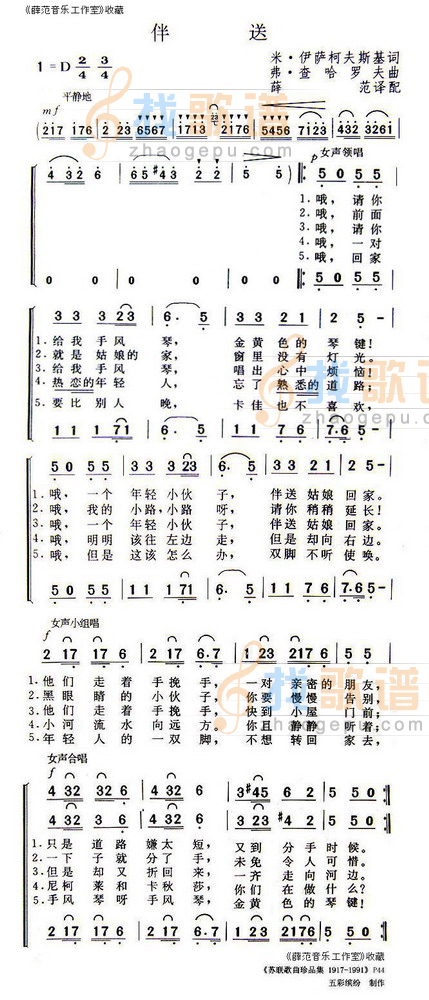 《薛范音乐工作室》收藏
伴 送
1=D 2/4 3/4
米·伊萨柯夫斯基词
弗·查哈罗夫曲
薛 范译配
平静地
mf
217 176 2 23 6567 1713 2176 5456 7123 432 3261
女声领唱
p
4 3 2 65 #4 3 2 2 5 5 5 0 5 5
1.哦，请你
2.哦，前面
3.哦，请你
4.哦，一对
5.哦，回家
0 0 0 0 0 0 5 0 5 5
3 3 3 23 6. 5 3 3 2 1 2 5 -
1.给我手风琴，金黄色的琴键！
2.就是姑娘的家，窗里没有灯光。
3.给我手风琴，唱出心中烦恼！
4.热恋的年轻人，忘了熟悉的道路；
5.要比别人晚，卡佳也不喜欢，
1 1 1 71 6. 5 1 1 7 6 7.6 5
5 0 5 5 3 3 3 23 6. 5 3 3 2 1 2 5 -
1.哦，一个年轻小伙子，伴送姑娘回家。
2.哦，我的小路，小路呀，请你稍稍延长！
3.哦，一个年轻小伙子，伴送姑娘回家。
4.哦，明明该往左边走，但是却向右边。
5.哦，但是这该怎么办，双脚不听使唤。
5 0 5 5 1 1 1 71 6. 5 1 1 7 6 7.6 5
女声小组唱
f
2 17 17 6 2 17 17 6 1 23 2176 5 5
1.他们走着手挽手，一对亲密的朋友，
2.黑眼睛的小伙子，你要慢慢告别，
3.他们走着手挽手，快到小屋门前；
4.小河流水向远方。你且静静听着；
5.年轻人的一双脚，不想转回家去，
女声合唱
f
4 32 32 6 4 32 32 6 3 #45 6 2 5 5
4 32 32 6 4 32 32 6 3 23 2 #4 5 5
1.只是道路嫌太短，又到分手时候。
2.一下子就分了手，未免令人可惜。
3.但是却又折回来，一齐走向河边。
4.尼柯莱和卡秋莎，你们在做什么？
5.手风琴呀手风琴，金黄色的琴键！
2 17 17 6 2 17 17 6 1 23 2176 5 5
《薛范音乐工作室》收藏
《苏联歌曲珍品集 1917-1991》P44
五彩缤纷 制作
找歌谱
zhaogepu.com